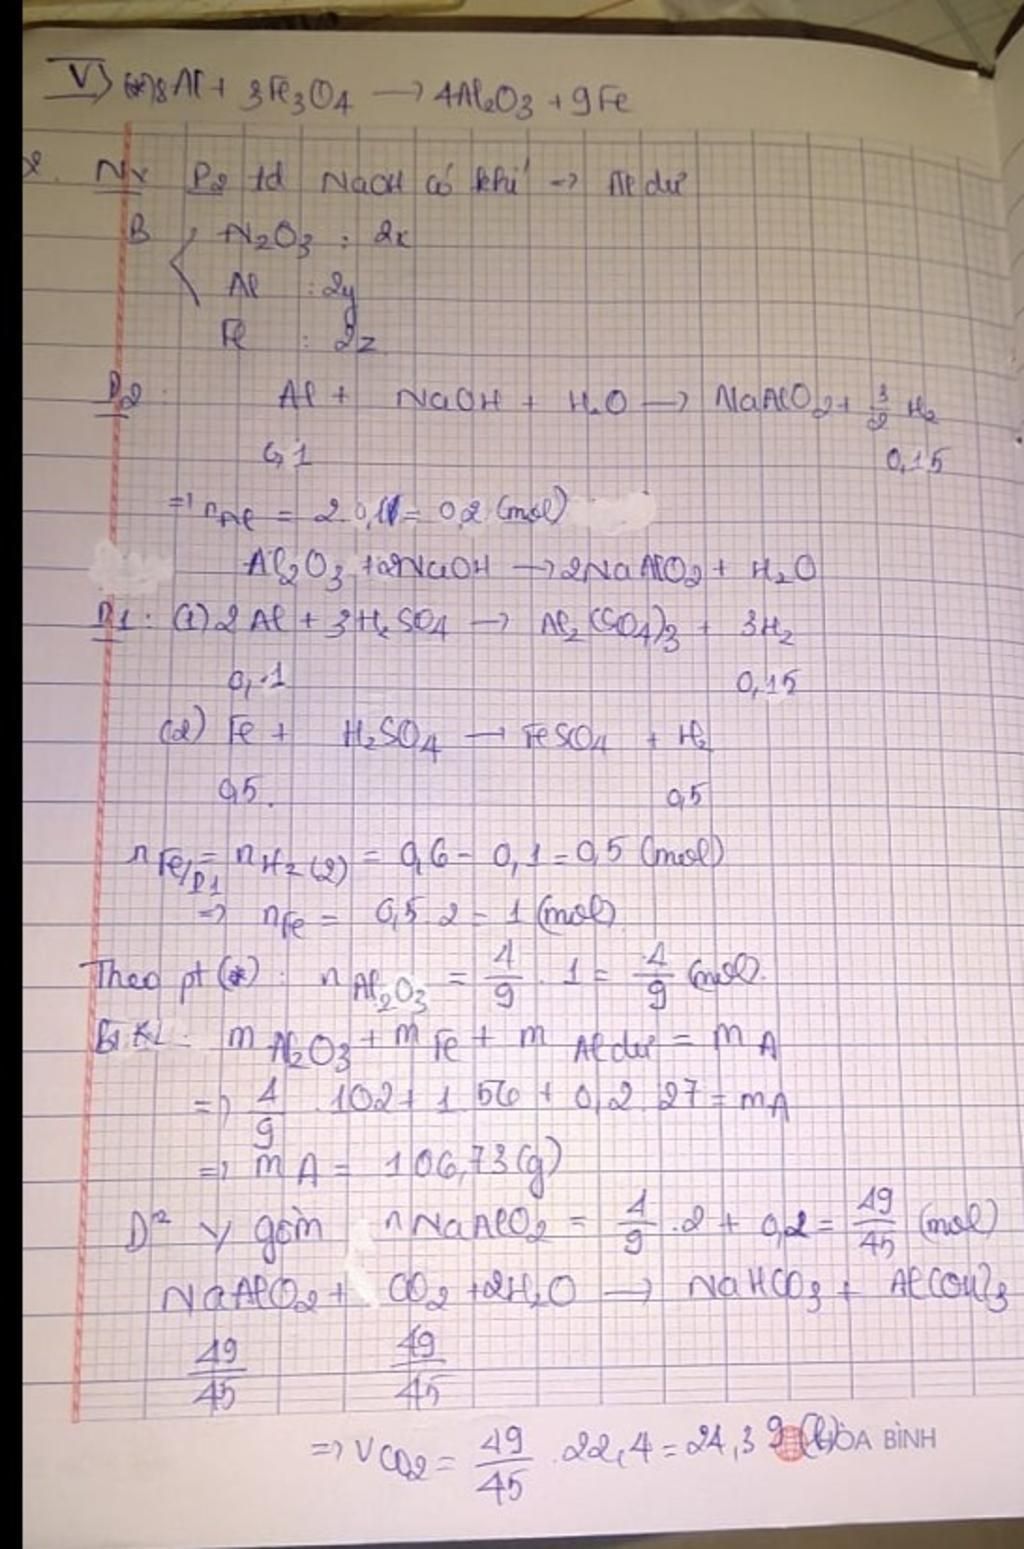 V) (*) 8Al + 3Fe3O4 → 4Al2O3 + 9Fe
2. Nx P2 td NaOH có khí → Al dư
B Al2O3 : 2x
Al : 2y
Fe : 2z
P2 : Al + NaOH + H2O → NaAlO2 + 3/2 H2
0,1 0,15
=> nAl = 2.0,1 = 0,2 (mol)
Al2O3 + 2NaOH → 2NaAlO2 + H2O
P1 : (1) 2Al + 3H2SO4 → Al2(SO4)3 + 3H2
0,1 0,15
(2) Fe + H2SO4 → FeSO4 + H2
0,5 0,5
nFe/P1 = nH2(2) = 0,6 - 0,1 = 0,5 (mol)
=> nFe = 0,5.2 = 1 (mol)
Theo pt (*) : nAl2O3 = 4/9 . 1 = 4/9 (mol).
BTKL : mAl2O3 + mFe + mAl dư = mA
=> 4/9 . 102 + 1.56 + 0,2.27 = mA
=> mA = 106,73 (g)
D2 Y gồm nNaAlO2 = 4/9 .2 + 0,2 = 49/45 (mol)
NaAlO2 + CO2 + 2H2O → NaHCO3 + Al(OH)3
49/45 49/45
=> VCO2 = 49/45 . 22,4 = 24,39 (l)
ÒA BÌNH